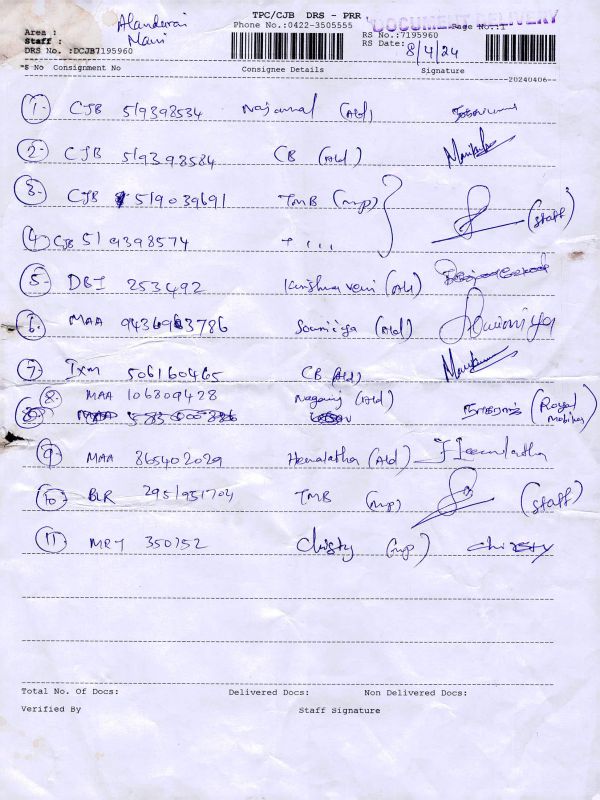 TPC/CJB DRS - PRR
DOCUMENT DELIVERY
Area : Alandurai
Phone No.:0422-3505555
Page No.:1
Staff : Mani
RS No.:7195960
DRS No. :DCJB7195960
RS Date: 8/4/24
S No Consignment No Consignee Details Signature
20240406
1. CJB 519398534 (Ald)
2. CJB 519398584 CB (Ald)
3. CJB 519039691 TMB (mp)
4. CJB 519398574 (Staff)
5. DBI 253492 Krishnaveni (Ald)
6. MAA 9436963786 Sowmiya (Ald) Sowmiya
7. Ixm 506160465 CB (Ald)
8. MAA 106809428 Nagaraj (Ald) நாகராஜ் (Royal Mobiles)
9. MAA 865402029 Hemalatha (Ald) Hemalatha
10. BLR 2951951704 TMB (mp) (Staff)
11 MRY 350152 Christy (mp) Christy
Total No. Of Docs: Delivered Docs: Non Delivered Docs:
Verified By Staff Signature